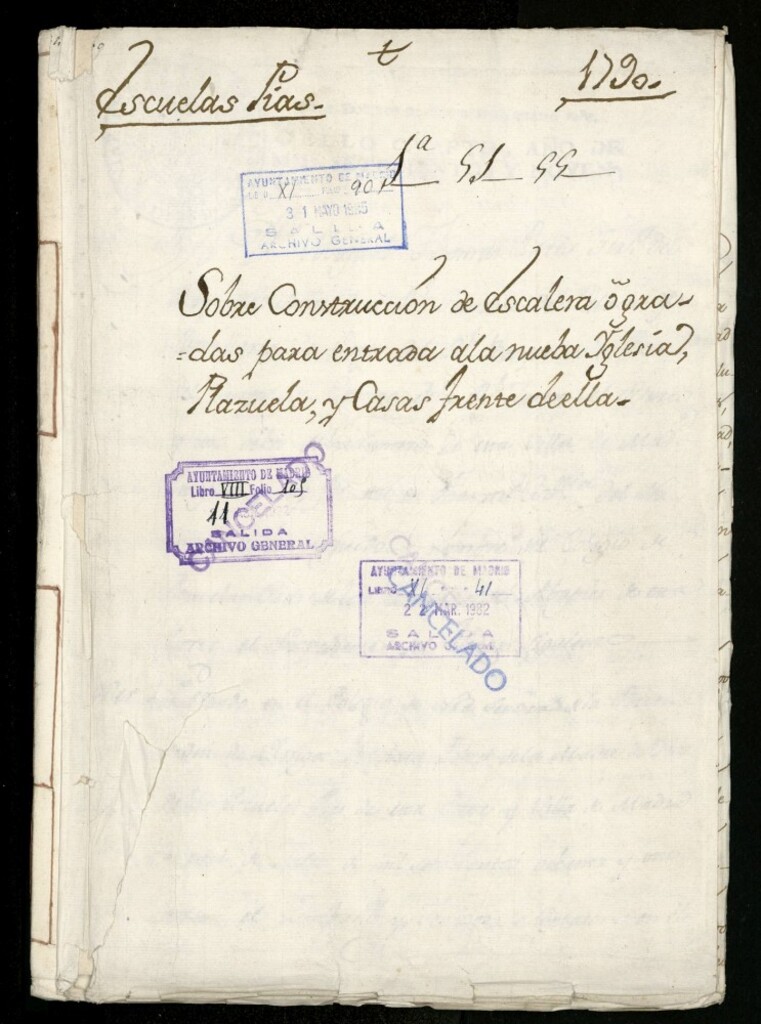 t
Escuelas Pias.
1790.
1ª 51 55
AYUNTAMIENTO DE MADRID
XI 901
31 MAYO 1985
SALIDA
ARCHIVO GENERAL
Sobre Construccion de Escalera o gra-
=das para entrada ala nueba Yglesia,
Plazuela, y Casas frente deella-
AYUNTAMIENTO DE MADRID
Libro VIII Folio
11
SALIDA
ARCHIVO GENERAL
CANCELADO
AYUNTAMIENTO DE MADRID
LIBRO XI 41
22 MAR. 1982
SALIDA
ARCHIVO GENERAL
CANCELADO